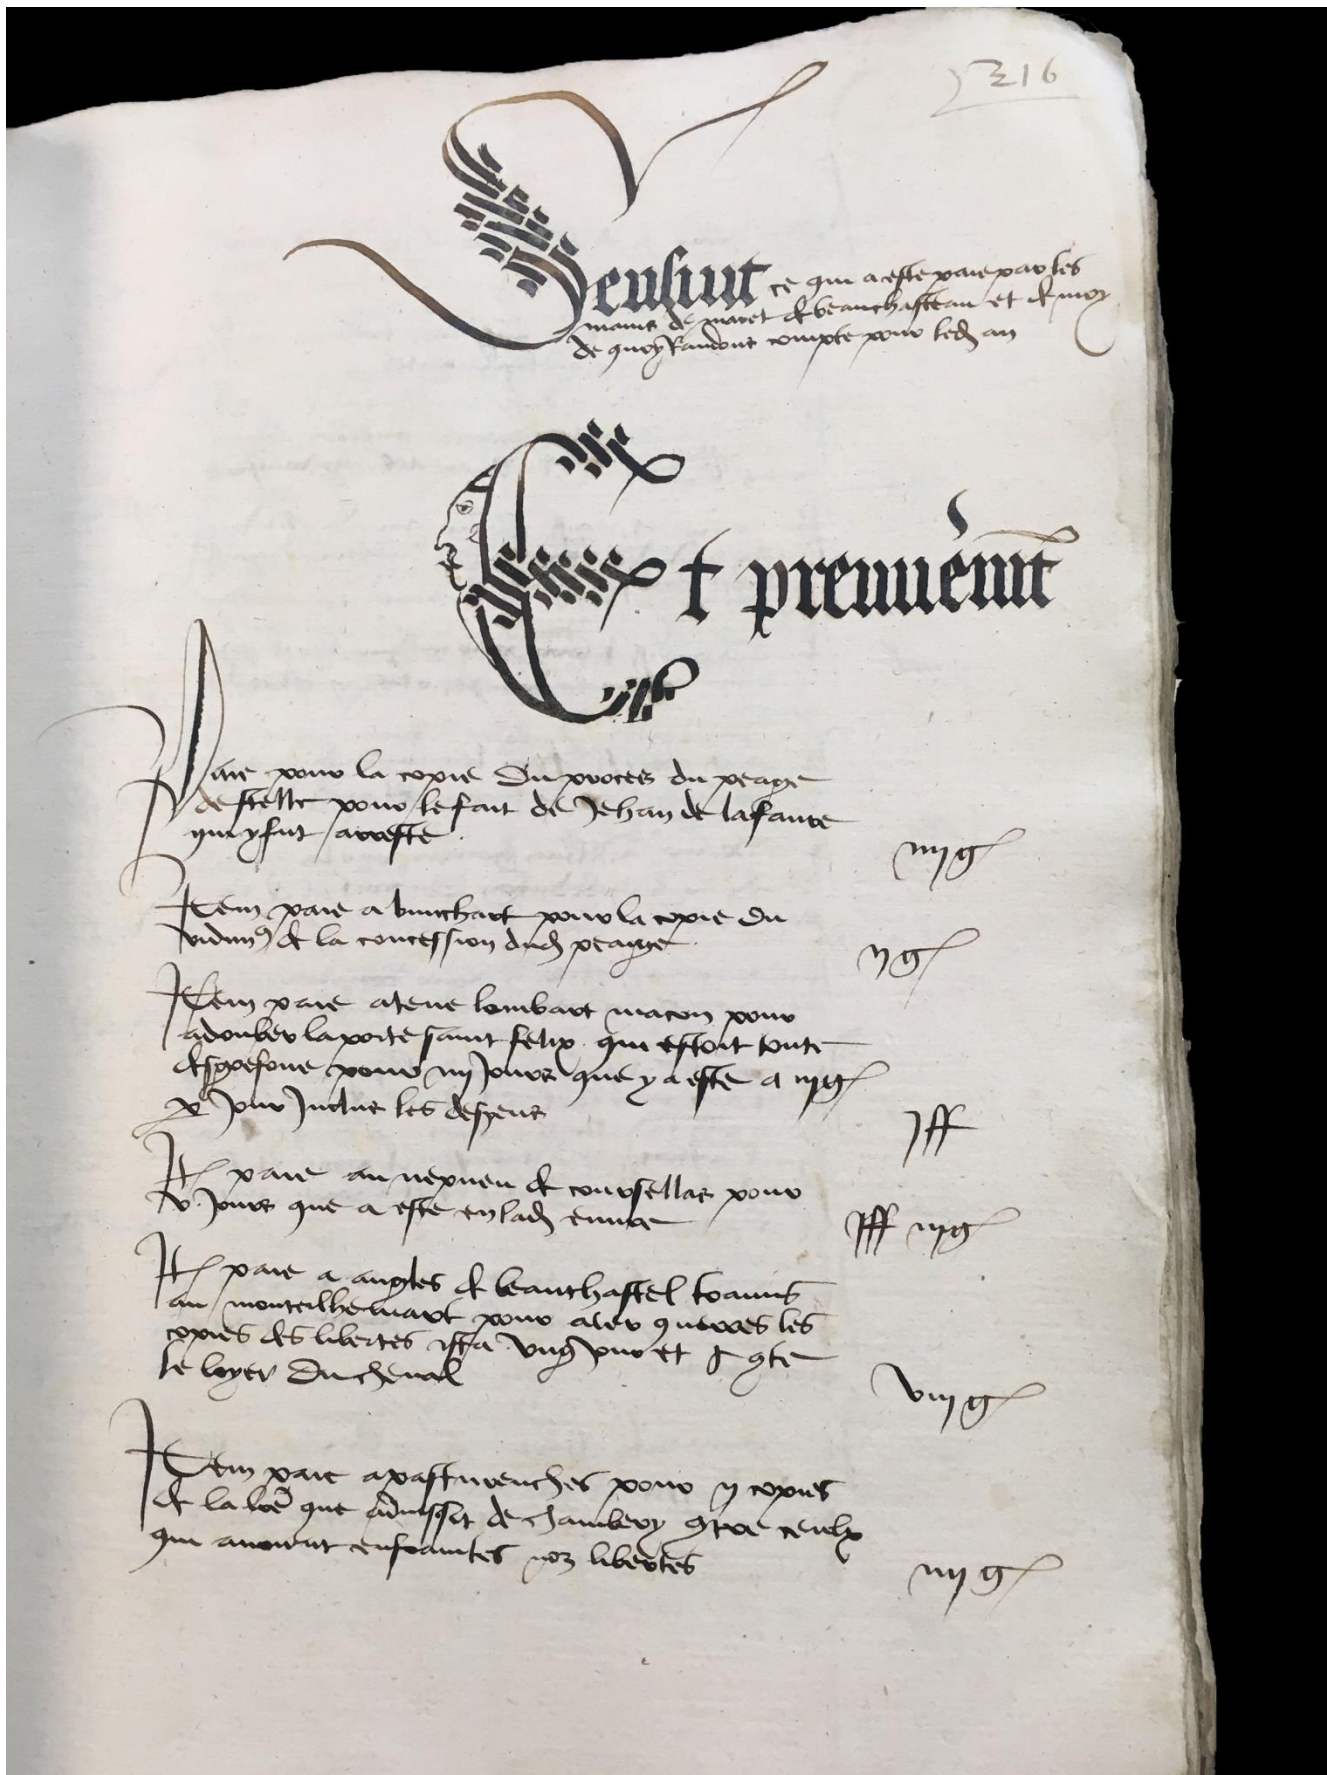 216
Sensiut ce que a este paie par les
mains de maret de beauchasteau et de moy
de quoy Randons compte pour led an
Et premierement
Paie pour la copie du proces du peage
destelle pour le fait de Jehan de lafaure
qui y fut arreste
iiij g
Item paie a bunchart pour la copie du
vidimus de la concession dud peaige
ij g
Item paie a lombart macon pour
adouber la porte saint felix qui estoit toute
pour iiij Jours que y a este a iij g
per Jour Inclus les despens
J ff
It paie au nepueu de coursellas pour
v Jours que a este en lad euure
J ff iij g
It paie a angles de beauchastel tramis
au monteilhemart pour aler querres les
copies des libertes ung Jour et
le loyer du cheval
viij g
Item paie a pasturenches pour ij copies
de la lre que de chambery contre ceulx
qui auoient enfraintes noz libertes
iiij g